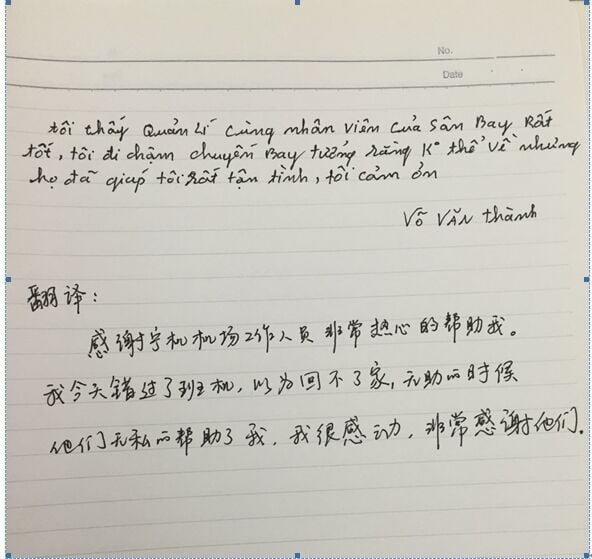 No.
Date
tôi thấy Quản Lí cùng nhân viên của Sân Bay Rất
tốt, tôi đi chậm chuyến Bay tưởng rằng K° thể về nhưng
họ đã giúp tôi rất tận tình, tôi cảm ơn
Võ Văn thành
翻译：
感谢宁机机场工作人员非常热心的帮助我。
我今天错过了班机，以为回不了家，无助的时候
他们无私的帮助了我，我很感动，非常感谢他们.